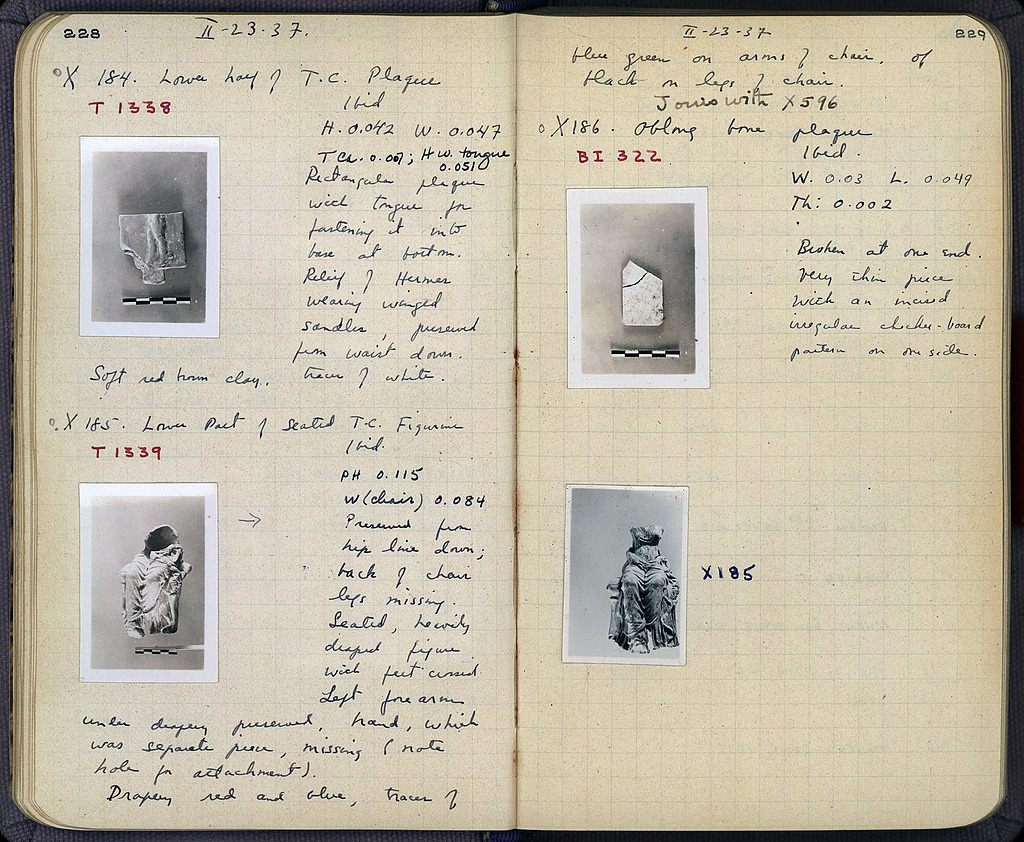 228
II-23-37.
X 184. Lower half of T.C. Plaque
T 1338
Ibid
H. 0.042 W. 0.047
0.007; H w. tongue
0.051
Rectangular plaque
with tongue for
fastening it into
base at bottom.
Relief of Hermes
wearing winged
sandles, preserved
from waist down.
Soft red brown clay. traces of white.
X 185. Lower Part of seated T.C. Figurine
T 1339
Ibid.
PH 0.115
W (chair) 0.084
→
Preserved from
hip line down;
back of chair
legs missing.
Seated, heavily
draped figure
with feet crossed.
Left forearm
under drapery preserved, hand, which
was separate piece, missing (note
hole for attachment).
Drapery red and blue, traces of
229
II-23-37
blue green on arms of chair, of
black on legs of chair.
Joins with X596
X186. Oblong bone plaque
BI 322
Ibid.
W. 0.03 L. 0.049
Th: 0.002
Broken at one end.
Very thin piece
with an incised
irregular checker-board
pattern on one side.
X185